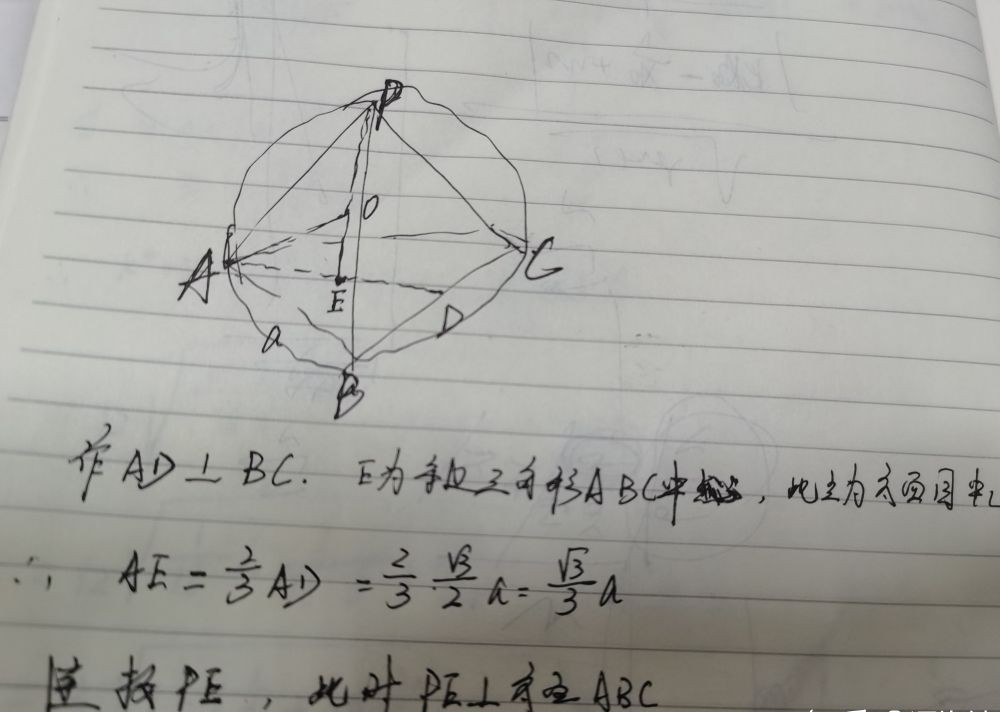 P
O
A
C
E
D
a
B
作 AD⊥BC. E为等边三角形ABC中, 此点为方面圆中心
∴ AE = 2/3 AD = 2/3 · √3/2 a = √3/3 a
连接PE, 此时PE⊥ ABC